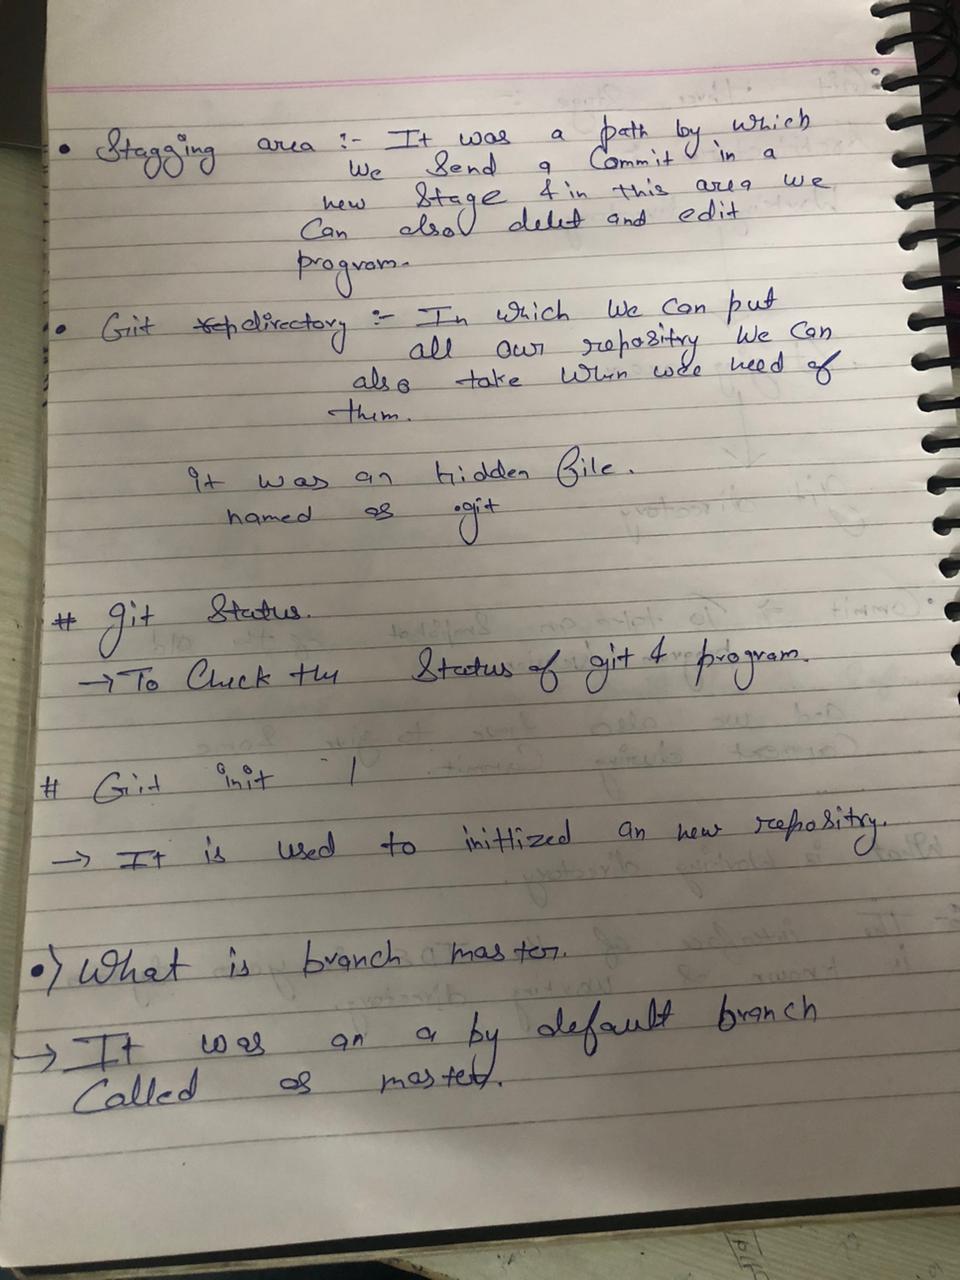 • Stagging area :- It was a path by which
we Send a Commit in a
new Stage & in this area we
Can also delet and edit
program.
• Git directory :- In which we can put
all our repositry we can
also take when need of
them.
it was an hidden file.
named as .git
# git Status.
→ To Check the Status of git & program.
# Git init
→ It is used to initlized an new repositry.
•) What is branch master.
→ It was an a by default branch
Called as master.